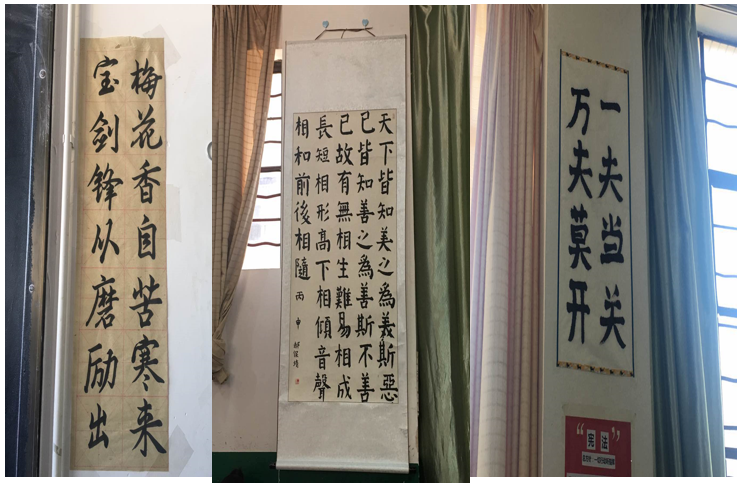 梅花香自苦寒来
宝剑锋从磨励出
天下皆知美之為義斯惡
已皆知善之為善斯不善
已故有無相生難易相成
長短相形高下相傾音聲
相和前後相隨
丙申
一夫当关
万夫莫开
“宪法”